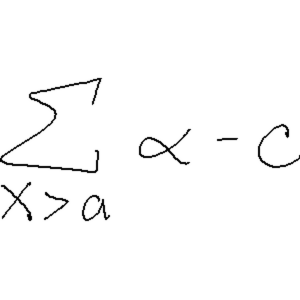 ∑_{X>a} α - c